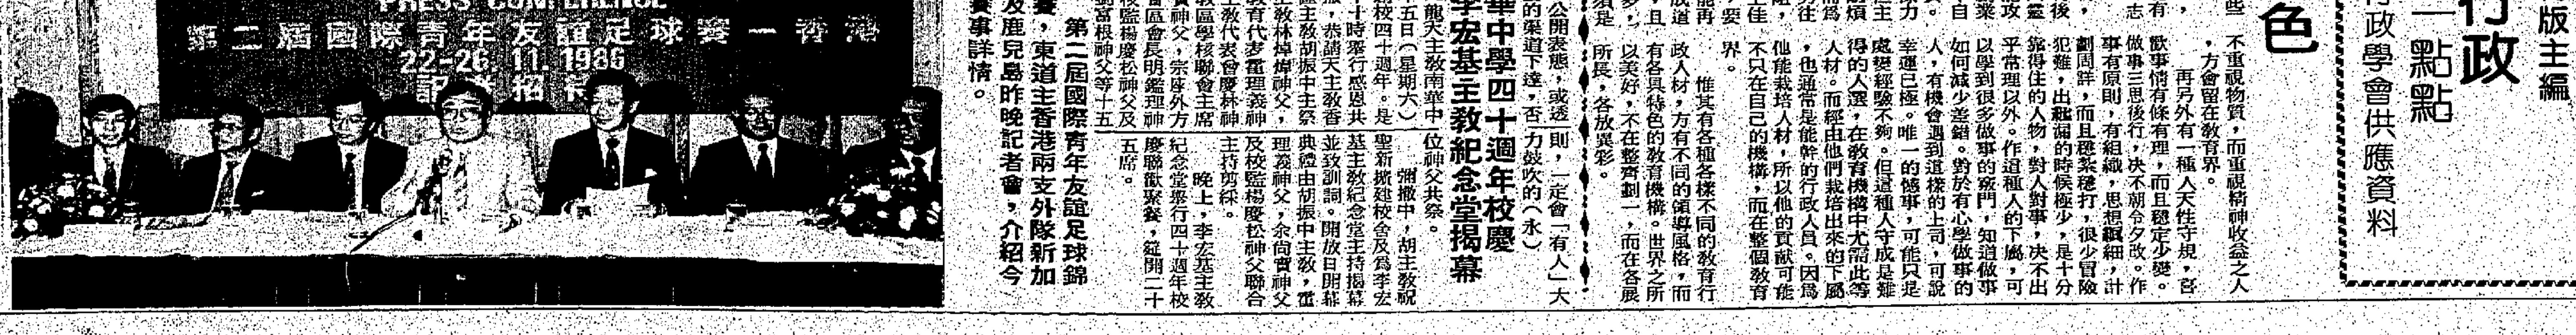 版主編
行政
一點點
行政學會供應資料
色
些
不重視物質，而重視精神收益之人
，方會留在教育界。
再另外有一種人天性守規，喜
歡事情有條有理，而且穩定少變。
做事三思後行，決不朝令夕改。作
事有原則，有組織，思想縝細，計
劃周詳，而且穩紮穩打，很少冒險
犯難，出紕漏的時候極少，是十分
靠得住的人物，對人對事，決不出
乎常理以外。作這種人的下屬，可
以學到很多做事的竅門，知道做事
如何減少差錯。對於有心學做事的
人，有機會遇到這樣的上司，可說
幸運已極。唯一的憾事，可能只是
處變經驗不夠。但這種人守成是難
得的人選，在教育機構中尤需此等
人材。而經由他們栽培出來的下屬
，也通常是能幹的行政人員。因為
他能栽培人材，所以他的貢獻可能
不只在自己的機構，而在整個教育
界。
惟其有各種各樣不同的教育行
政人材，方有不同的領導風格，而
有各具特色的教育機構。世界之所
以美好，不在整齊劃一，而在各展
所長，各放異彩。
公開表態，或透
的渠道下達，否
則，一定會「有人」大
力鼓吹的（永）
華中學四十週年校慶
李宏基主教紀念堂揭幕
龍天主教南華中
十五日（星期六）
校四十週年。是
十時舉行感恩共
，恭請天主教香
主教胡振中主祭
教林焯煒神父，
教育代表董理義神
主教代表曾慶林神
教區學校聯會主席
神父，宗座外方
區會長明鑑理神
校監楊慶松神父及
當根神父等十五
位神父共祭。
彌撒中，胡主教祝
聖新擴建校舍及為李宏
基主教紀念堂主持揭幕
並致訓詞。開放日開幕
典禮由胡振中主教，董
理義神父，余尚實神父
及校監楊慶松神父聯合
主持剪綵。
晚上，李宏基主教
紀念堂舉行四十週年校
慶聯歡聚餐，筵開二十
五席。
第二屆國際青年友誼足球錦
賽，東道主香港兩支外隊新加
及鹿兒島昨晚記者會，介紹今
賽事詳情。
PRESS CONFERENCE
第二屆國際青年友誼足球賽—香港
22-26 11 1986
記者招